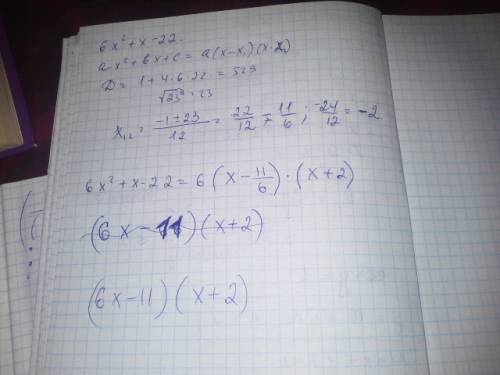 6x² + x - 22.
ax² + bx + c = a(x-x₁)(x-x₂)
D = 1 + 4·6·22 = 529
√23² = 23
x₁,₂ = (-1±23)/12 = 22/12 = 11/6 ; -24/12 = -2
6x² + x - 22 = 6(x - 11/6)·(x+2)
(6x - 11)(x+2)
(6x - 11)(x + 2)